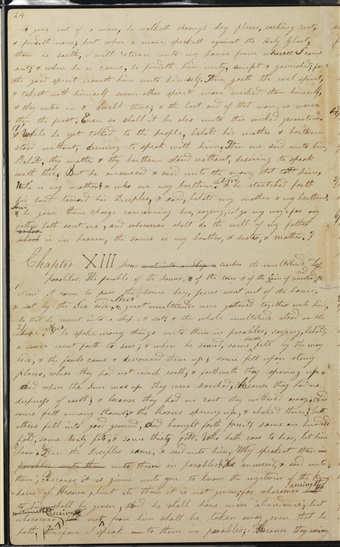 24
is gone out of a man, he walketh through dry places, seeking rest,
& findeth none; but when a man speaketh against the Holy Ghost,
then he saith, I will return into my house from whence I came
out; & when he is come, he findeth him empty, swept & garnished; for
the good spirit leaveth him unto himself. Then goeth the evil spirit,
& taketh with himself seven other spirits more wicked than himself,
& they enter in & dwell there; & the last end of that man, is worse
than the first. Even so shall it be also unto this wicked generation.
& While he yet talked to the people, behold his mother & brethren
stood without, desiring to speak with him. Then one said unto him,
Behold, thy mother & thy brethren stand without, desiring to speak
with thee. But he answered & said unto the man, that told him,
Who is my mother? & who are my brethren? And he stretched forth
his hand toward his Disciples, & said, behold my mother & my brethren!
& he gave them charge concerning her, saying, I go my way, for my
father hath sent me, and whosoever shall do the will of my father
which is in heaven, the same is my brother, & sister, & mother.
Chapter XIII Jesus teaches the multitude, by
parables. The parable of the sower, & of the tares & of the
& it came to pass the same day, Jesus went out of the house,
& sat by the sea side, & great multitudes were gathered together unto him,
so that he went into a ship, & sat, & the whole multitude stood on the
shore, & he spoke many things unto them in parables, saying, behold,
a sower went forth to sow; & when he sowed some seeds fell by the way
side, & the fowls came & devoured them up; some fell upon stony
places, where they had not much earth; & forthwith they sprung up,
and when the sun was up they were scorched, because they had no
deepness of earth; & because they had no root they withered away; and
some fell among thorns, & the thorns sprung up, & choked them; but
others fell into good ground, and brought forth fruit; some an hundred
fold, some sixty fold, & some thirty fold. Who hath ears to hear, let him
hear. Then the Disciples came, & said unto him, Why speakest thou
unto them in parables? He answered, & said unto
them; Because it is given unto you to know the mysteries of the
dom of Heaven, but to them it is not given; for whosoever receiveth
to him shall be given, and he shall have more abundance; but
whosoever receiveth not from him shall be taken away even that he
hath, therefore I speak to them in parables; Because they seeing